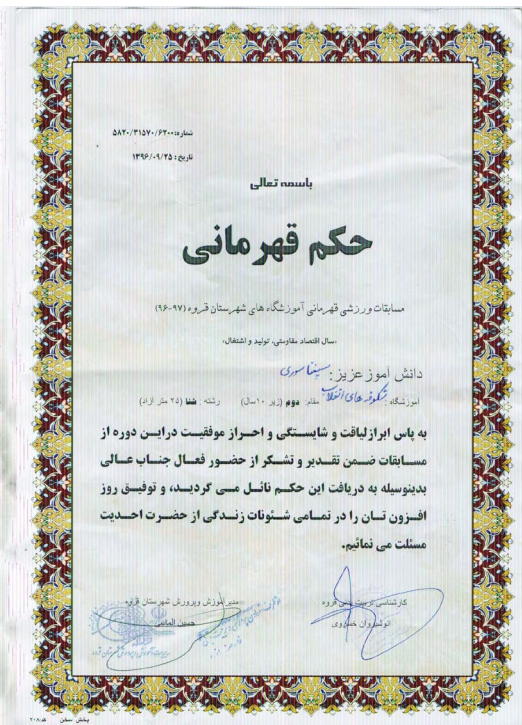 شماره: ۵۸۲۰/۳۱۵۷۰/۶۲۰۰
تاریخ: ۱۳۹۶/۰۹/۲۵
باسمه تعالی
حکم قهرمانی
مسابقات ورزشی قهرمانی آموزشگاه های شهرستان قروه (۹۷-۹۶)
«سال اقتصاد مقاومتی، تولید و اشتغال»
دانش آموز عزیز: سوری
آموزشگاه: شکوفه های انقلاب مقام: دوم (زیر ۱۰سال) رشته: شنا (۲۵ متر آزاد)
به پاس ابراز لیاقت و شایستگی و احراز موفقیت دراین دوره از
مسابقات ضمن تقدیر و تشکر از حضور فعال جناب عالی
بدینوسیله به دریافت این حکم نائل می گردید، و توفیق روز
افزون تان را در تمامی شئونات زندگی از حضرت احدیت
مسئلت می نمائیم.
کارشناسی تربیت بدنی قروه
انوشیروان خسروی
مدیر آموزش وپرورش شهرستان قروه
حسین الماسی
پخش سخن کد:۲۰۸